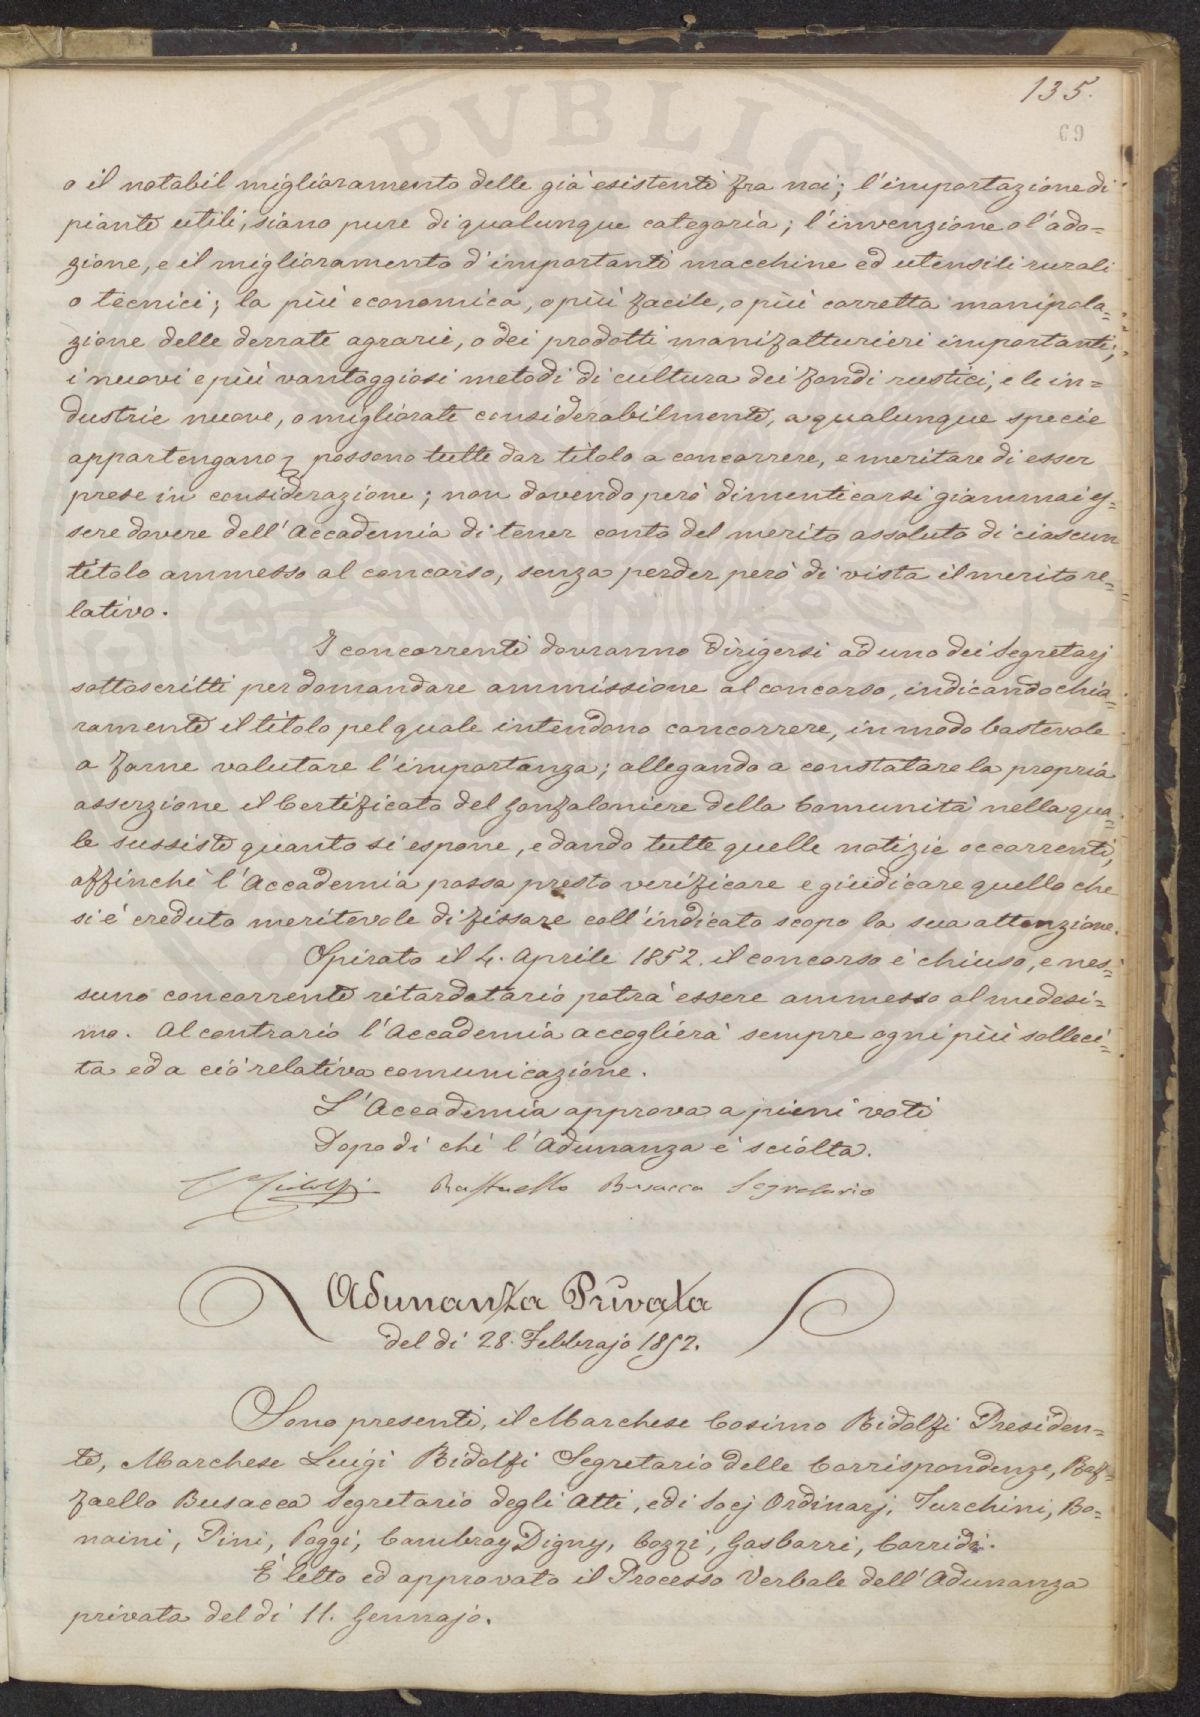 135.
69
o il notabil miglioramento delle già esistenti fra noi; l'importazione di
piante utili, siano pure di qualunque categoria; l'invenzione o l'ado=
zione, e il miglioramento d'importanti macchine ed utensili rurali
o tecnici; la più economica, o più facile, o più corretta manipola=
zione delle derrate agrarie, o dei prodotti manifatturieri importanti;
i nuovi e più vantaggiosi metodi di cultura dei fondi rustici, e le in=
dustrie nuove, o migliorate considerabilmente, a qualunque specie
appartengano, possono tutte dar titolo a concorrere, e meritare di esser
prese in considerazione; non dovendo però dimenticarsi giammai es=
sere dovere dell'Accademia di tener conto del merito assoluto di ciascun
titolo ammesso al concorso, senza perder però di vista il merito re=
lativo.
I concorrenti dovranno dirigersi ad uno dei Segretarj
sottoscritti per domandare ammissione al concorso, indicando chia=
ramente il titolo pel quale intendono concorrere, in modo bastevole
a farne valutare l'importanza; allegando a constatare la propria
asserzione il Certificato del Gonfaloniere della Comunità nella qua=
le sussiste quanto si espone, e dando tutte quelle notizie occorrenti,
affinchè l'Accademia possa presto verificare e giudicare quello che
si è creduto meritevole di fissare coll'indicato scopo la sua attenzione.
Spirato il 4. Aprile 1852. il concorso è chiuso, e nes=
suno concorrente ritardatario potrà essere ammesso al medesi=
mo. Al contrario l'Accademia accoglierà sempre ogni più solleci=
ta ed a ciò relativa comunicazione.
L'Accademia approva a pieni voti
Dopo di chè l'Adunanza è sciolta.
C Ridolfi Raffaello Busacca Segretario
Adunanza Privata
del dì 28. Febbrajo 1852.
Sono presenti, il Marchese Cosimo Ridolfi Presiden=
te, Marchese Luigi Ridolfi Segretario delle Corrispondenze, Raf=
faello Busacca Segretario degli Atti, ed i Socj Ordinarj, Turchini, Bo=
naini, Pini, Poggi, Cambray Digny, Cozzi, Gasbarri, Corridi.
È letto ed approvato il Processo Verbale dell'Adunanza
privata del dì 11. Gennajo.
PVBLIC